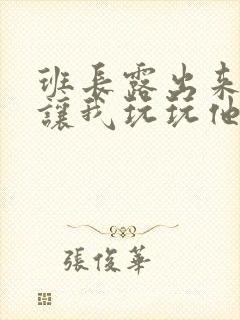 班長露出来
讓我玩玩他
張俊華